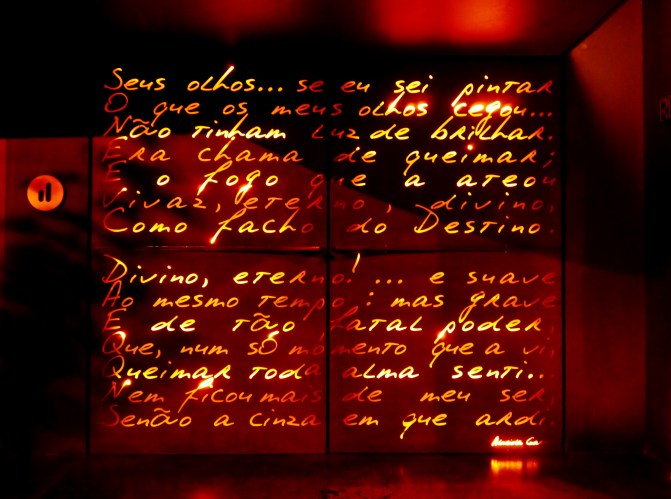 Seus olhos... se eu sei pintar
O que os meus olhos cegou...
Não tinham luz de brilhar.
Era chama de queimar;
E o fogo que a ateou
Vivaz, eterno, divino,
Como facho do Destino.
Divino, eterno! ... e suave
Ao mesmo tempo: mas grave
E de tão fatal poder,
Que, num só momento que a vi,
Queimar toda alma senti...
Nem ficou mais de meu ser,
Senão a cinza em que ardi.